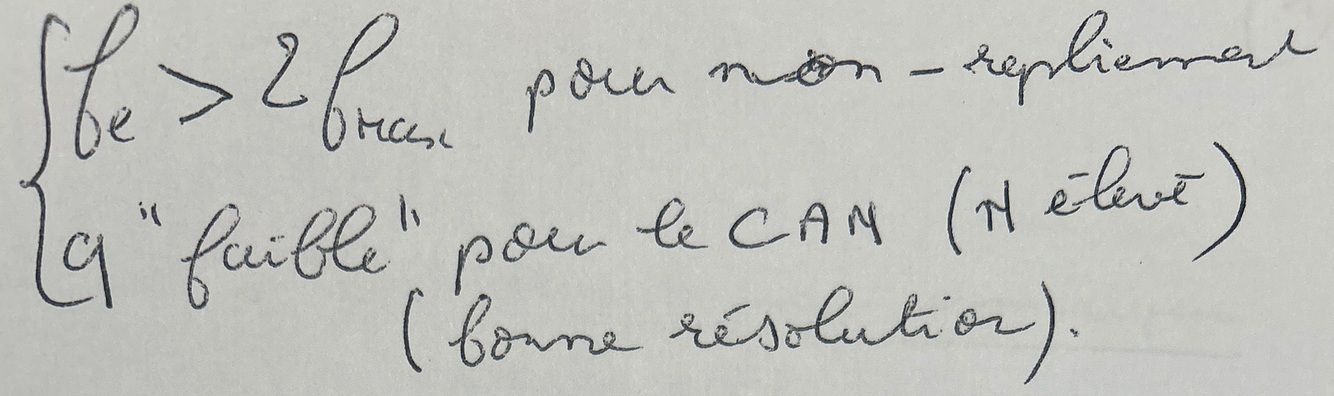 { fe > 2 fmax pour non-repliement
q "faible" pour le CAN (N élevé)
(bonne résolution).